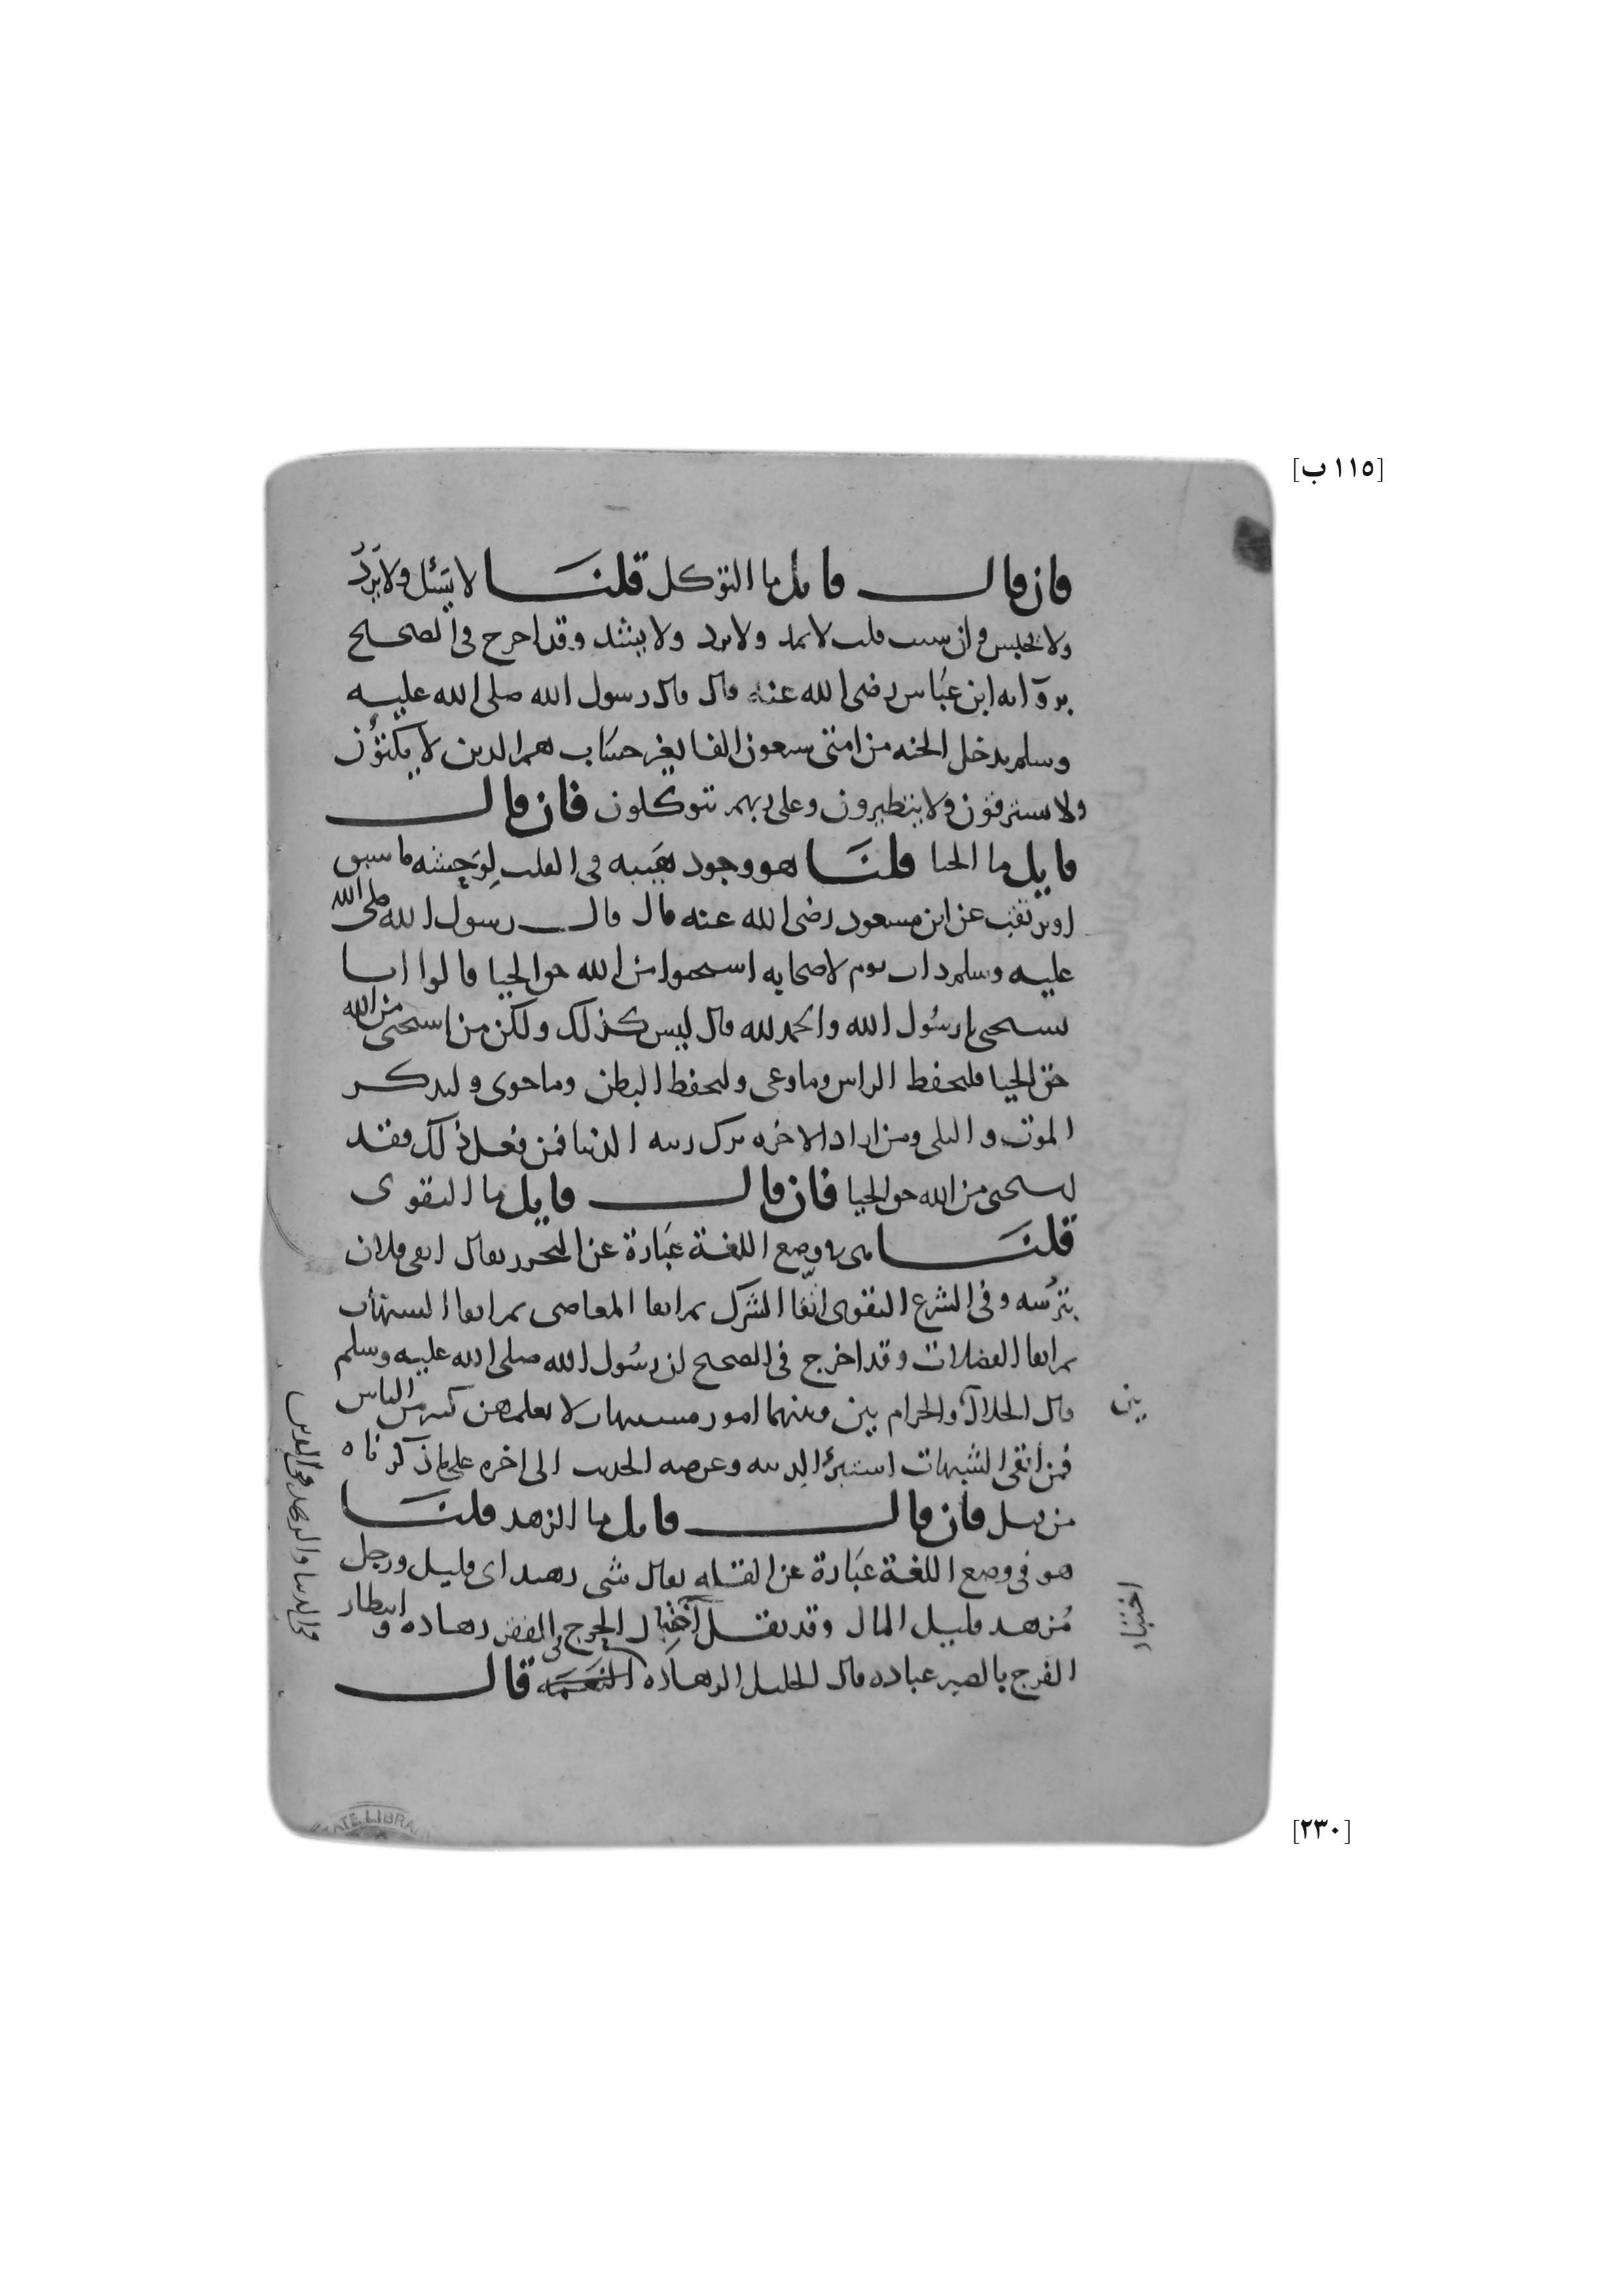 [١١٥ ب]
فان قال قايل ما التوكل قلنا لا يسئل ولا يرد
ولا يحبس وان سيت قلت لا يمد ولا يرد ولا يبتئد وقد اخرج في الصحيح
برواية ابن عباس رضى الله عنه قال قال رسول الله صلى الله عليه
وسلم يدخل الجنه من امتى سبعون الفا بغير حساب هم الذين لا يكتوون
ولا يسترقون ولا يتطيرون وعلى ربهم يتوكلون فان قال
قايل ما الحيا قلنا هو وجود هيبه في القلب لوحشه ما سبق
عن ابن مسعود رضى الله عنه قال قال رسول الله صلى الله
عليه وسلم ذات يوم لاصحابه استحيوا من الله حق الحيا قالوا انا
نستحيى يا رسول الله والحمد لله قال ليس كذلك ولكن من استحيى من الله
حق الحيا فليحفظ الراس وما وعى وليحفظ البطن وما حوى وليذكر
الموت والبلى ومن اراد الاخره ترك زينه الدنيا فمن فعل ذلك فقد
استحيى من الله حق الحيا فان قال قايل ما التقوى
قلنا هى في وضع اللغة عبادة عن التحرز يقال اتقى فلان
بترسه وفى الشرع التقوى اتقا الشرك ثم اتقا المعاصى ثم اتقا الشبهات
ثم اتقا الفضلات وقد اخرج في الصحيح ان رسول الله صلى الله عليه وسلم
قال الحلال والحرام بين وبينهما امور مشتبهات لا يعلمهن كثير من الناس
بين
فمن اتقى الشبهات استبرأ لدينه وعرضه الحديث الى اخره على ما ذكرناه
من قبل فان قال قايل ما الزهد قلنا
هو في وضع اللغة عبادة عن القله يقال شى زهيد اى قليل ورجل
مزهد قليل المال وقد نقل الحرج في الفقر زهاده وانتظار
اختيار
الفرج بالصبر عباده قال الخليل الزهاده قال
في الدنيا والزهد في الدين
[٢٣٠]